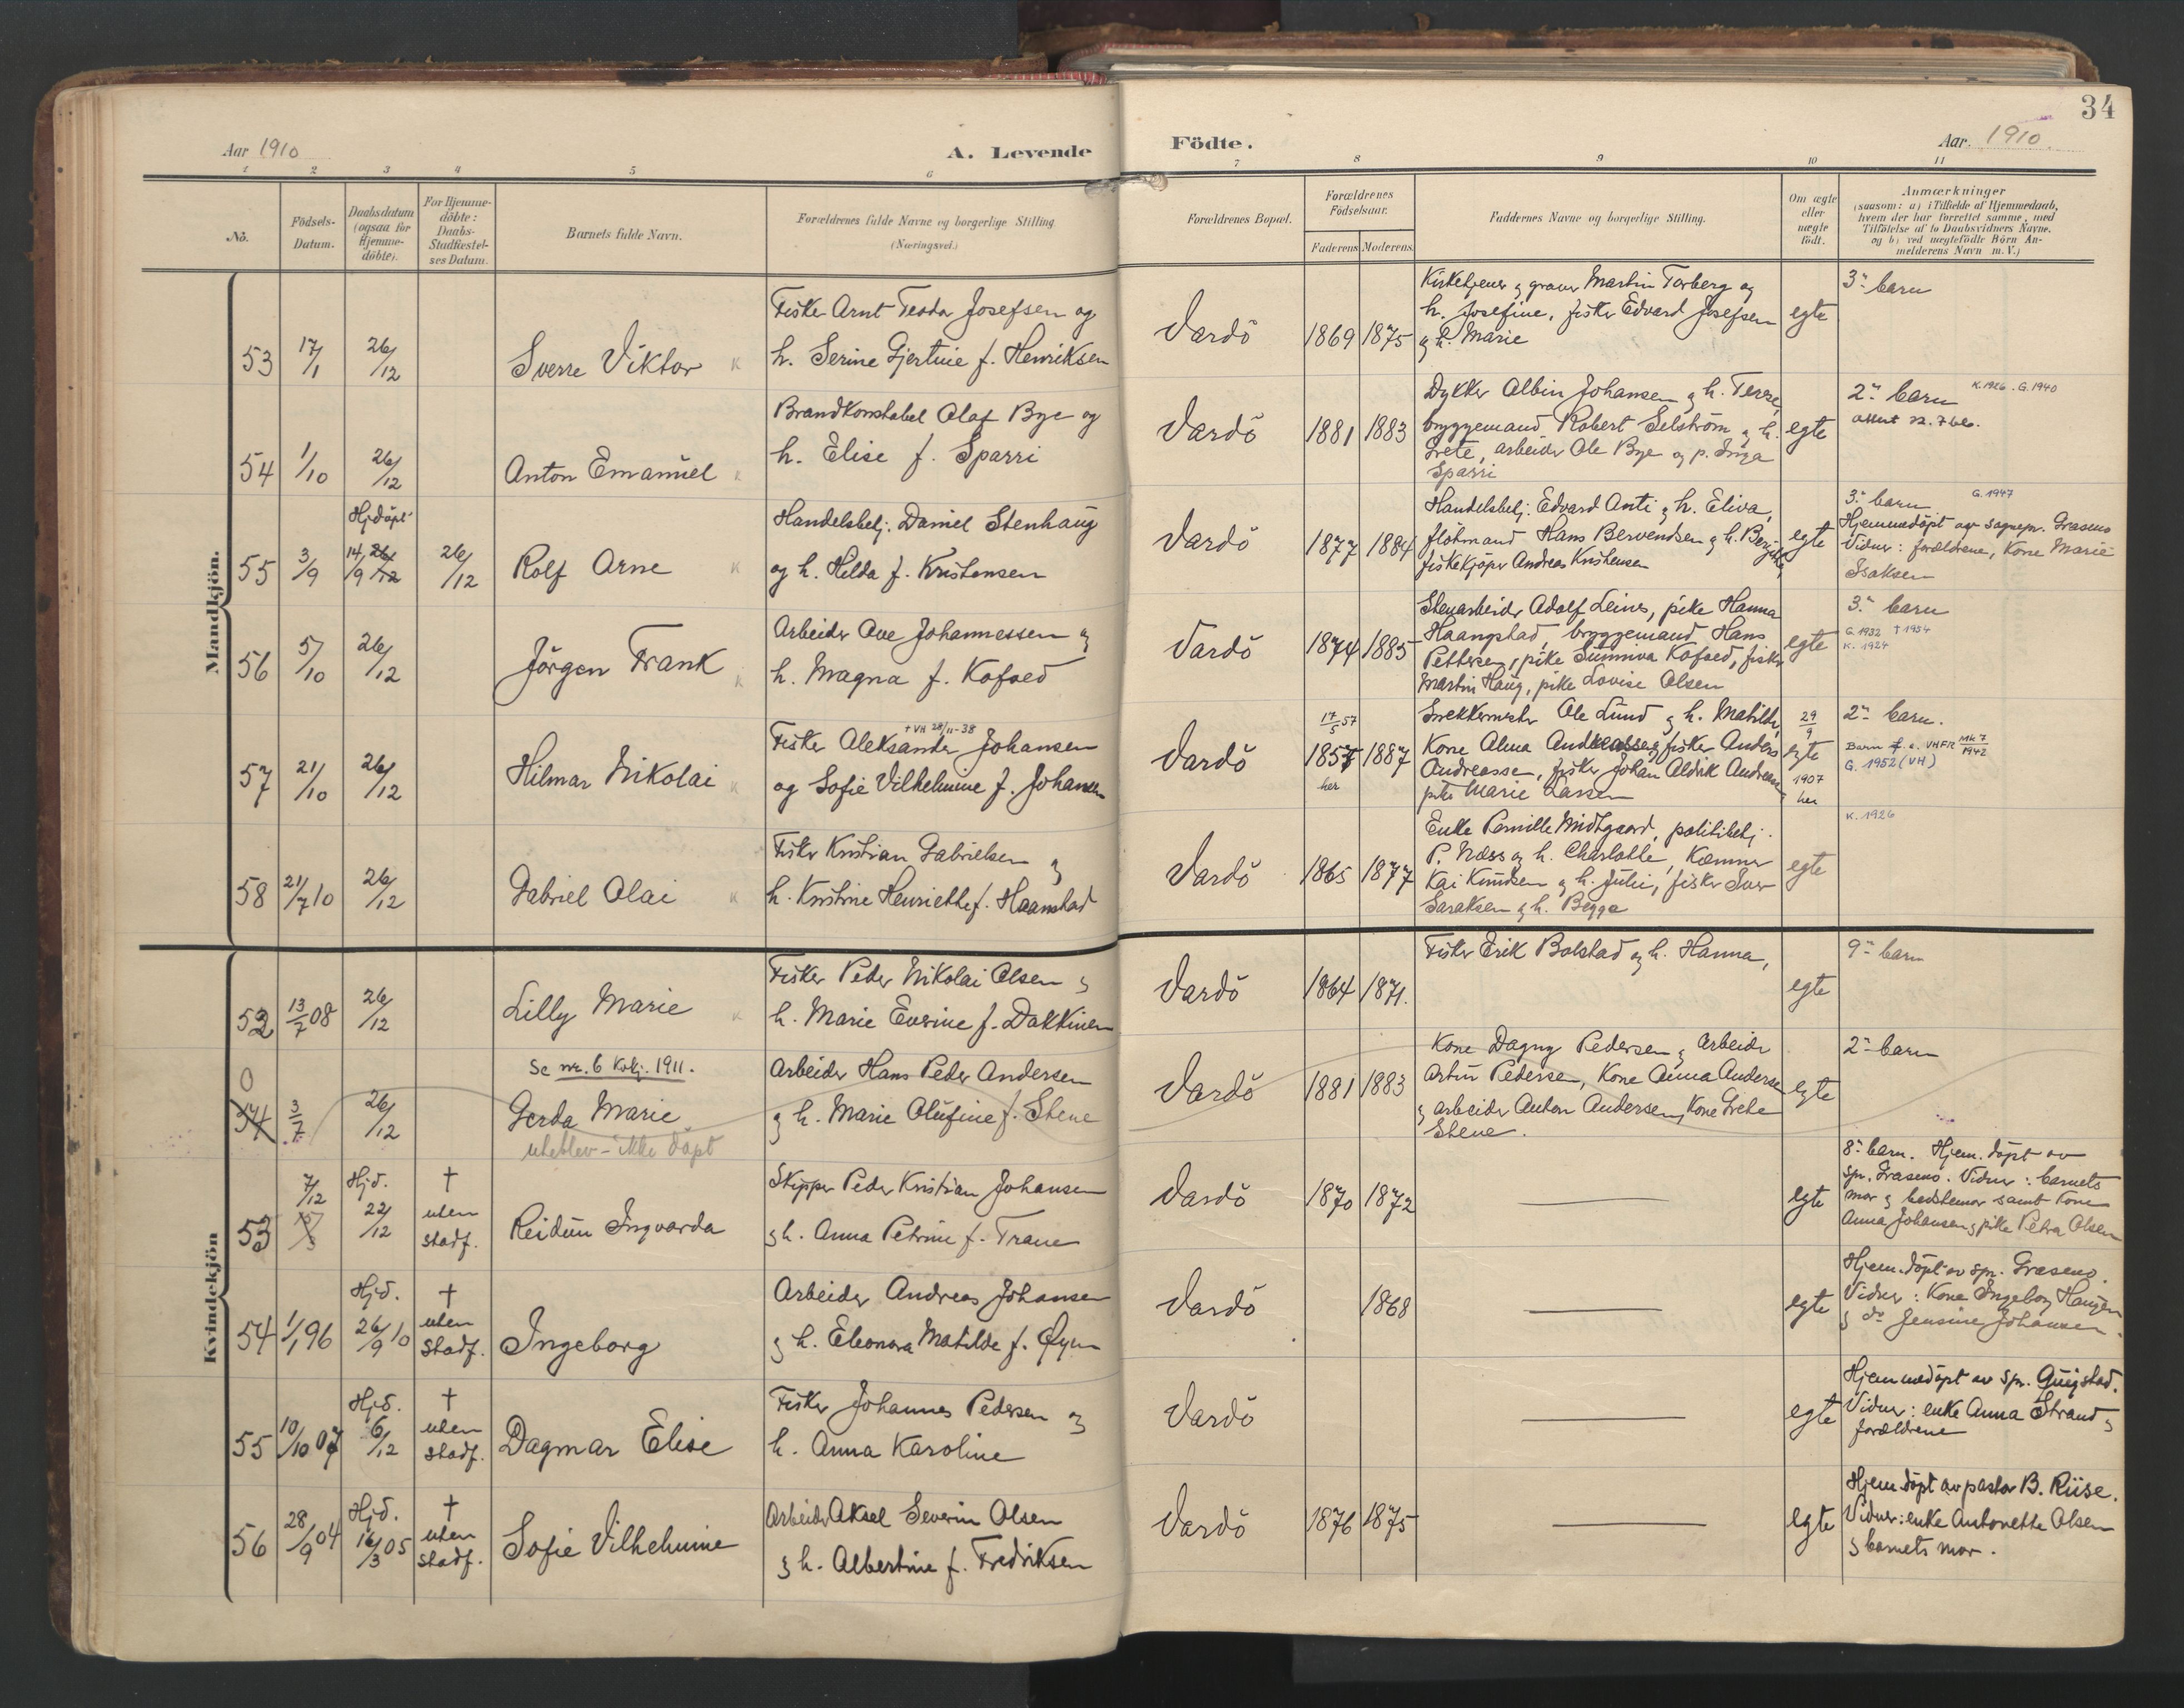 34
Aar 1910
A. Levende
Födte.
Aar. 1910.
1 2 3 4 5 6 7 8 9 10 11
No.
Födsels-
Datum.
Daabsdatum
(ogsaa for
Hjemme-
döbte).
For Hjemme-
döbte:
Daabs-
Stadfæstel-
ses Datum.
Barnets fulde Navn.
Forældrenes fulde Navne og borgerlige Stilling
(Næringsvei.)
Forældrenes Bopæl.
Forældrenes
Födselsaar.
Faderens Moderens
Faddernes Navne og borgerlige Stilling.
Om ægte
eller
uægte
födt.
Anmærkninger
(saasom: a) i Tilfælde af Hjemmedaab,
hvem der har forrettet samme, med
Tilföielse af to Daabsvidners Navne.
og b) ved uægtefödte Börn An-
melderens Navn m.V.)
Mandkjön.
53 17/1 26/12 Sverre Viktor
Fisker Arnt Teodor Josefsen og
h. Serine Gjertine f. Henriksen
Vardö 1869 1875
Kirketjener og graver Martin Torberg og
h. Josefine, fisker Edvard Josefsen
og h. Marie
egte
3. barn
54 1/10 26/12 Anton Emanuel
Brandkonstabel Olaf Bye og
h. Elise f. Sparri
Vardö 1881 1883
Dykker Albin Johansen og h. Terese,
bryggemand Robert Selström og h.
Grete, arbeider Ole Bye og p. Inga
Sparri
egte
2. barn K. 1926. G. 1940
55 3/9 Hjdöpt 14/9 26/12 26/12 Rolf Arne
Handelsbetj. Daniel Stenhaug
og h. Hilda f. Kristensen
Vardö 1877 1884
Handelsbetj. Edvard Anti og h. Eliva,
flöhmand Hans Bervendsen og h.
fiskekjöper Andreas Kristensen
egte
3. barn G. 1947
Hjemmedöpt av sognepr. Grasmo
Vidner: forældrene, Kone Marie
Isaksen
56 5/10 26/12 Jörgen Frank
Arbeider Ove Johannessen og
h. Magna f. Kofoed
Vardö 1874 1885
Stenarbeider Adolf Leines, pike Hanna
Haangstad, bryggemand Hans
Pettersen, pike Sunniva Kofoed, fisker
Martin Haug, pike Lovise Olsen
egte
3. barn
G. 1932 † 1954
K. 1924
57 21/10 26/12 Hilmar Nikolai
† VH 28/11-38
Fisker Aleksander Johansen
og Sofie Vilhelmine f. Johansen
Vardö 17/5 57 1857 her 1887
Snekkermester Ole Lund og h. Matilde,
Kone Alma Andreassen, fisker Anders
Andreassen, fisker Johan Aldrik Andreassen,
pike Marie Lassen
29/9 egte 1907 her
2. barn.
Barn f. a. VHFR MK 7 1942
G. 1952 (VH)
58 21/7 10 26/12 Gabriel Olai
Fisker Kristian Gabrielsen og
h. Kristine Henriette f. Haanstad
Vardö 1865 1877
Enke Pernille Midtgaard, politibetj.
P. Næss og h. Charlotte, Kæmner
Kai Knudsen og h. Julie, fisker Iver
Saraksen og h. Begga
egte
K. 1926
Kvindekjön
52 13/7 08 26/12 Lilly Marie
Fisker Peder Nikolai Olsen og
h. Marie Everine f. Dakkinen
Vardö 1864 1871.
Fisker Erik Bolstad og h. Hanna,
egte
9. barn
0
3/7 26/12 Se nr. 6 Kvkj. 1911.
Gerda Marie
uteblev - ikke döpt
Arbeider Hans Peder Andersen
og h. Marie Olufine f. Stene
Vardö 1881 1883
Kone Dagny Pedersen og arbeider
Artur Pedersen, Kone Anna Andersen
og arbeider Anton Andersen, Kone Grete
Stene.
egte
2. barn
53 7/12 Hjd. 22/12 † uten stadf. Reidun Ingvarda
Skipper Peder Kristian Johansen
og h. Anna Petrine f. Trane
Vardö 1870 1872
egte
8. barn. Hjem. döpt av
spr. Grasmo. Vidner: barnets
mor og bedstemor samt Kone
Anna Johansen og pike Petra Olsen
54 1/1 96 Hjd. 26/9 10 † uten stadf. Ingeborg
Arbeider Andreas Johansen
og h. Eleonora Matilde f. Øyen
Vardö 1868
egte
Hjem. döpt av spr. Grasmo.
Vidner: Kone Ingeborg Haugen
og do Jensine Johansen.
55 10/10 07 Hjd. 6/12 † uten stadf. Dagmar Elise
Fisker Johannes Pedersen og
h. Anna Karoline
Vardö
egte
Hjemmedöpt av spr. Gügstad.
Vidner: enke Anna Strand og
forældrene
56 28/9 04 Hjd. 16/3 05 † uten stadf. Sofie Vilhelmine
Arbeider Aksel Severin Olsen
og h. Albertine f. Fredriksen
Vardö 1876 1875
egte
Hjem. döpt av pastor B. Riise.
Vidner: enke Antonette Olsen
og barnets mor.